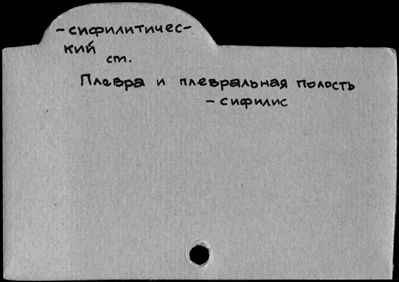 -сифилитичес-
кий
ст.
Плевра и плевральная полость
- сифилис